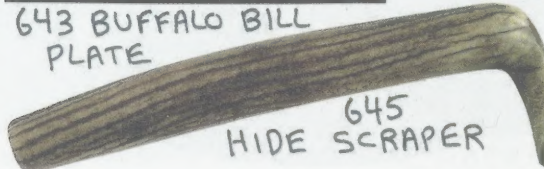 643 BUFFALO BILL
PLATE
645
HIDE SCRAPER